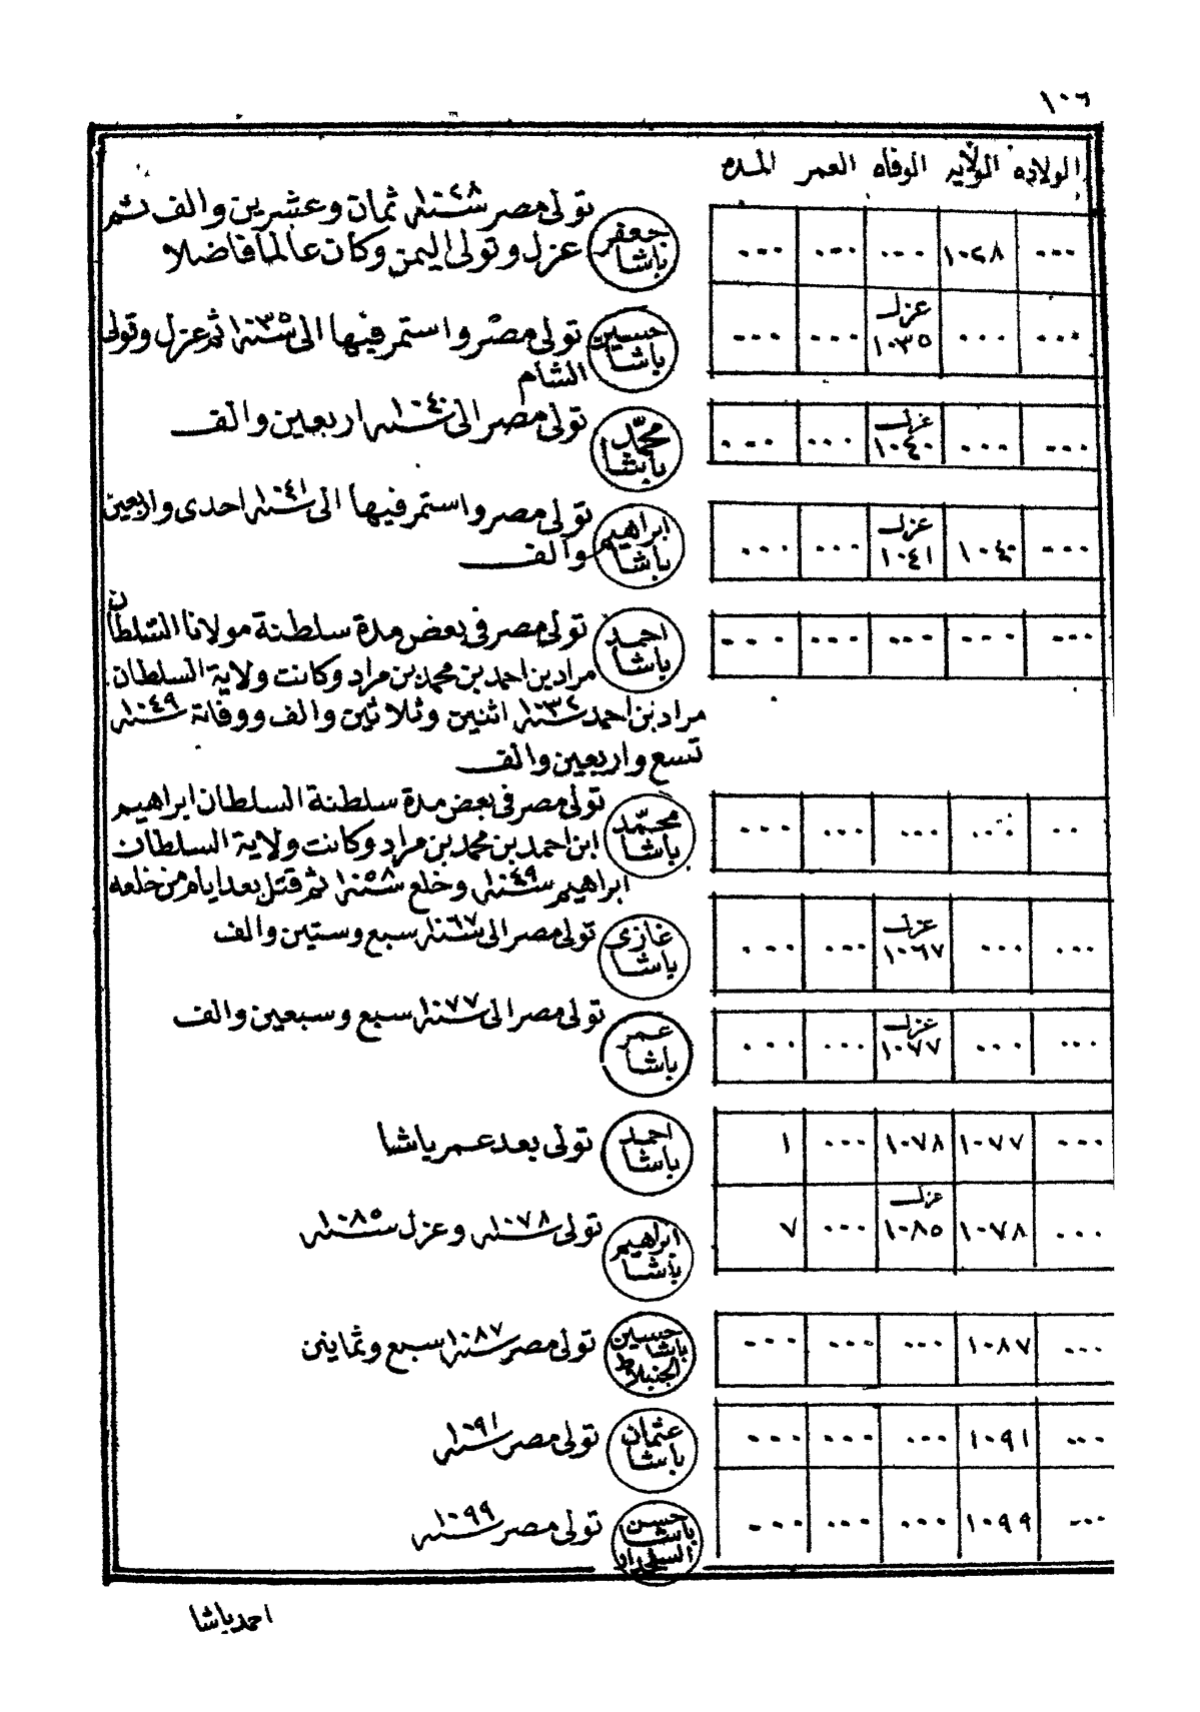 ١٠٦
الولاده الولايه الوفاه العمر المده
... ١٠٢٨ ... ... ...
جعفر باشا
تولى مصر سنة ١٠٢٨ ثمان وعشرين والف ثم
عزل وتولى اليمن وكان عالما فاضلا
... ... عزل ١٠٣٥ ... ...
حسين باشا
تولى مصر واستمر فيها الى سنة ١٠٣٥ ثم عزل وتولى
الشام
... ... عزل ١٠٤٠ ... ...
محمد باشا
تولى مصر الى سنة ١٠٤٠ اربعين والف
... ١٠٤٠ عزل ١٠٤١ ... ...
ابراهيم باشا
تولى مصر واستمر فيها الى سنة ١٠٤١ احدى واربعين
والف
... ... ... ... ...
احمد باشا
تولى مصر فى بعض مدة سلطنة مولانا السلطان
مراد بن احمد بن محمد بن مراد وكانت ولاية السلطان
مراد بن احمد سنة ١٠٣٢ اثنين وثلاثين والف ووفاته سنة ١٠٤٩
تسع واربعين والف
.. ... ... ... ...
محمد باشا
تولى مصر فى بعض مدة سلطنة السلطان ابراهيم
ابن احمد بن محمد بن مراد وكانت ولاية السلطان
ابراهيم سنة ١٠٤٩ وخلع سنة ١٠٥٨ ثم قتل بعد ايام من خلعه
... ... عزل ١٠٦٧ ... ...
غازى باشا
تولى مصر الى سنة ١٠٦٧ سبع وستين والف
... ... عزل ١٠٧٧ ... ...
عمر باشا
تولى مصر الى سنة ١٠٧٧ سبع وسبعين والف
... ١٠٧٧ ١٠٧٨ ... ١
احمد باشا
تولى بعد عمر باشا
... ١٠٧٨ عزل ١٠٨٥ ... ٧
ابراهيم باشا
تولى سنة ١٠٧٨ وعزل سنة ١٠٨٥
... ١٠٨٧ ... ... ...
حسين باشا الجنبلاط
تولى مصر سنة ١٠٨٧ سبع وثمانين
... ١٠٩١ ... ... ...
عثمان باشا
تولى مصر سنة ١٠٩١
... ١٠٩٩ ... ... ...
حسن باشا
تولى مصر سنة ١٠٩٩
احمد باشا